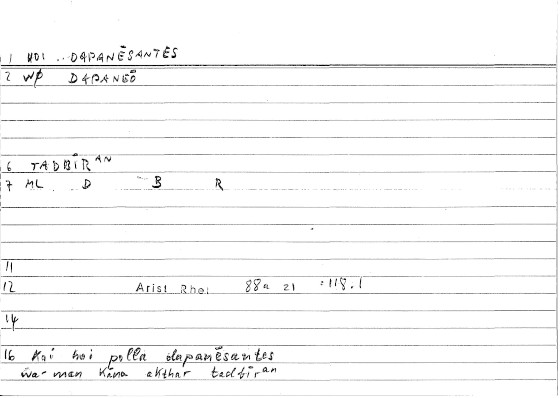 1 HOI .. DAPANĒSANTES
2 WP DAPANEŌ
6 TADBĪRAN
7 ML D B R
11
12 Arist Rhet 88a 21 : 118.1
14
16 Kai hoi polla dapanēsantes
wa-man kāna akthar tadbīran